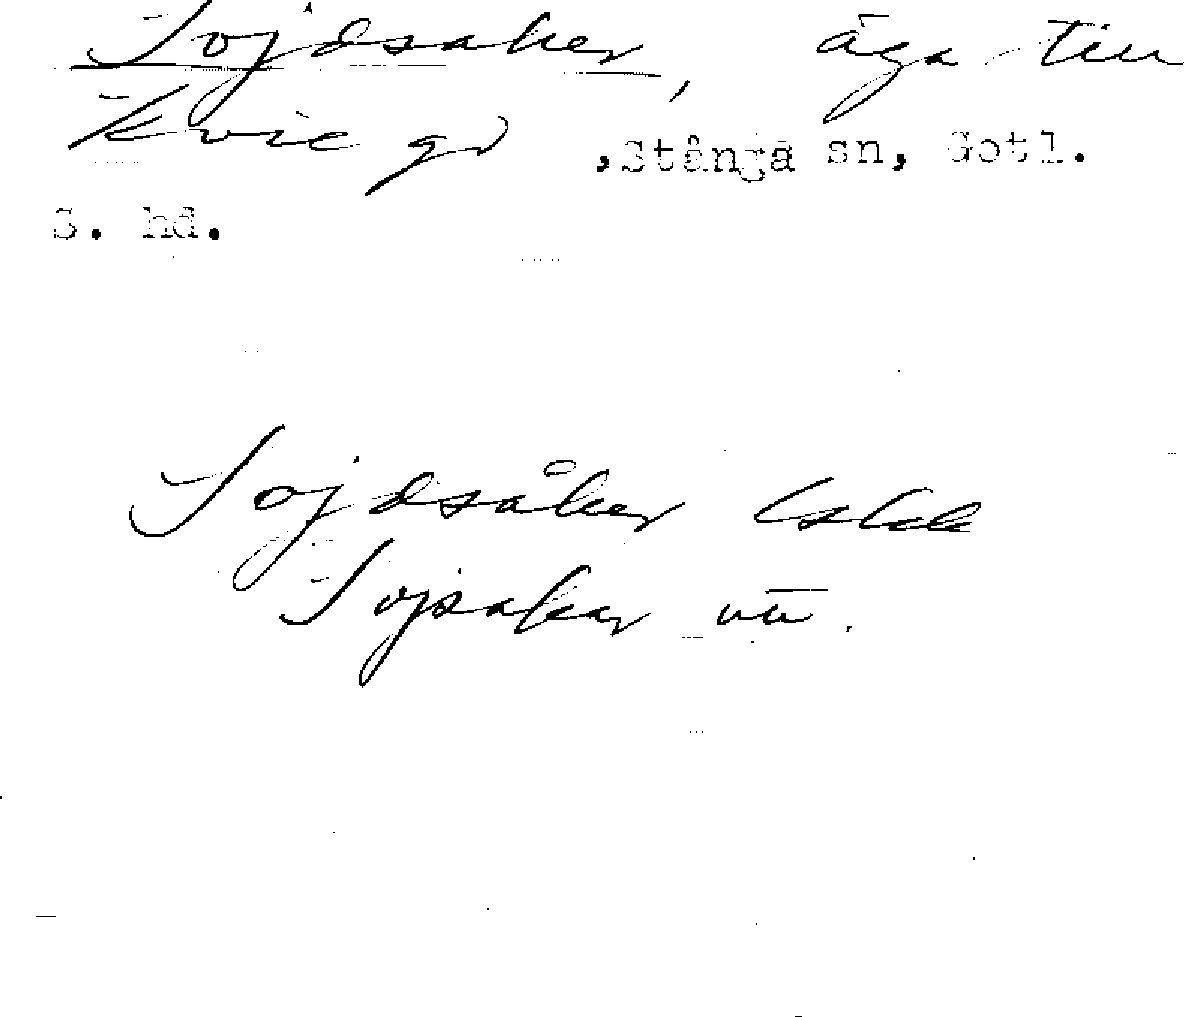 Sojdsaker, äga till
Kvie gd, Stånga sn, Gotl.
S. hd.
Sojdsåker Lskk
Sojsakar utt.